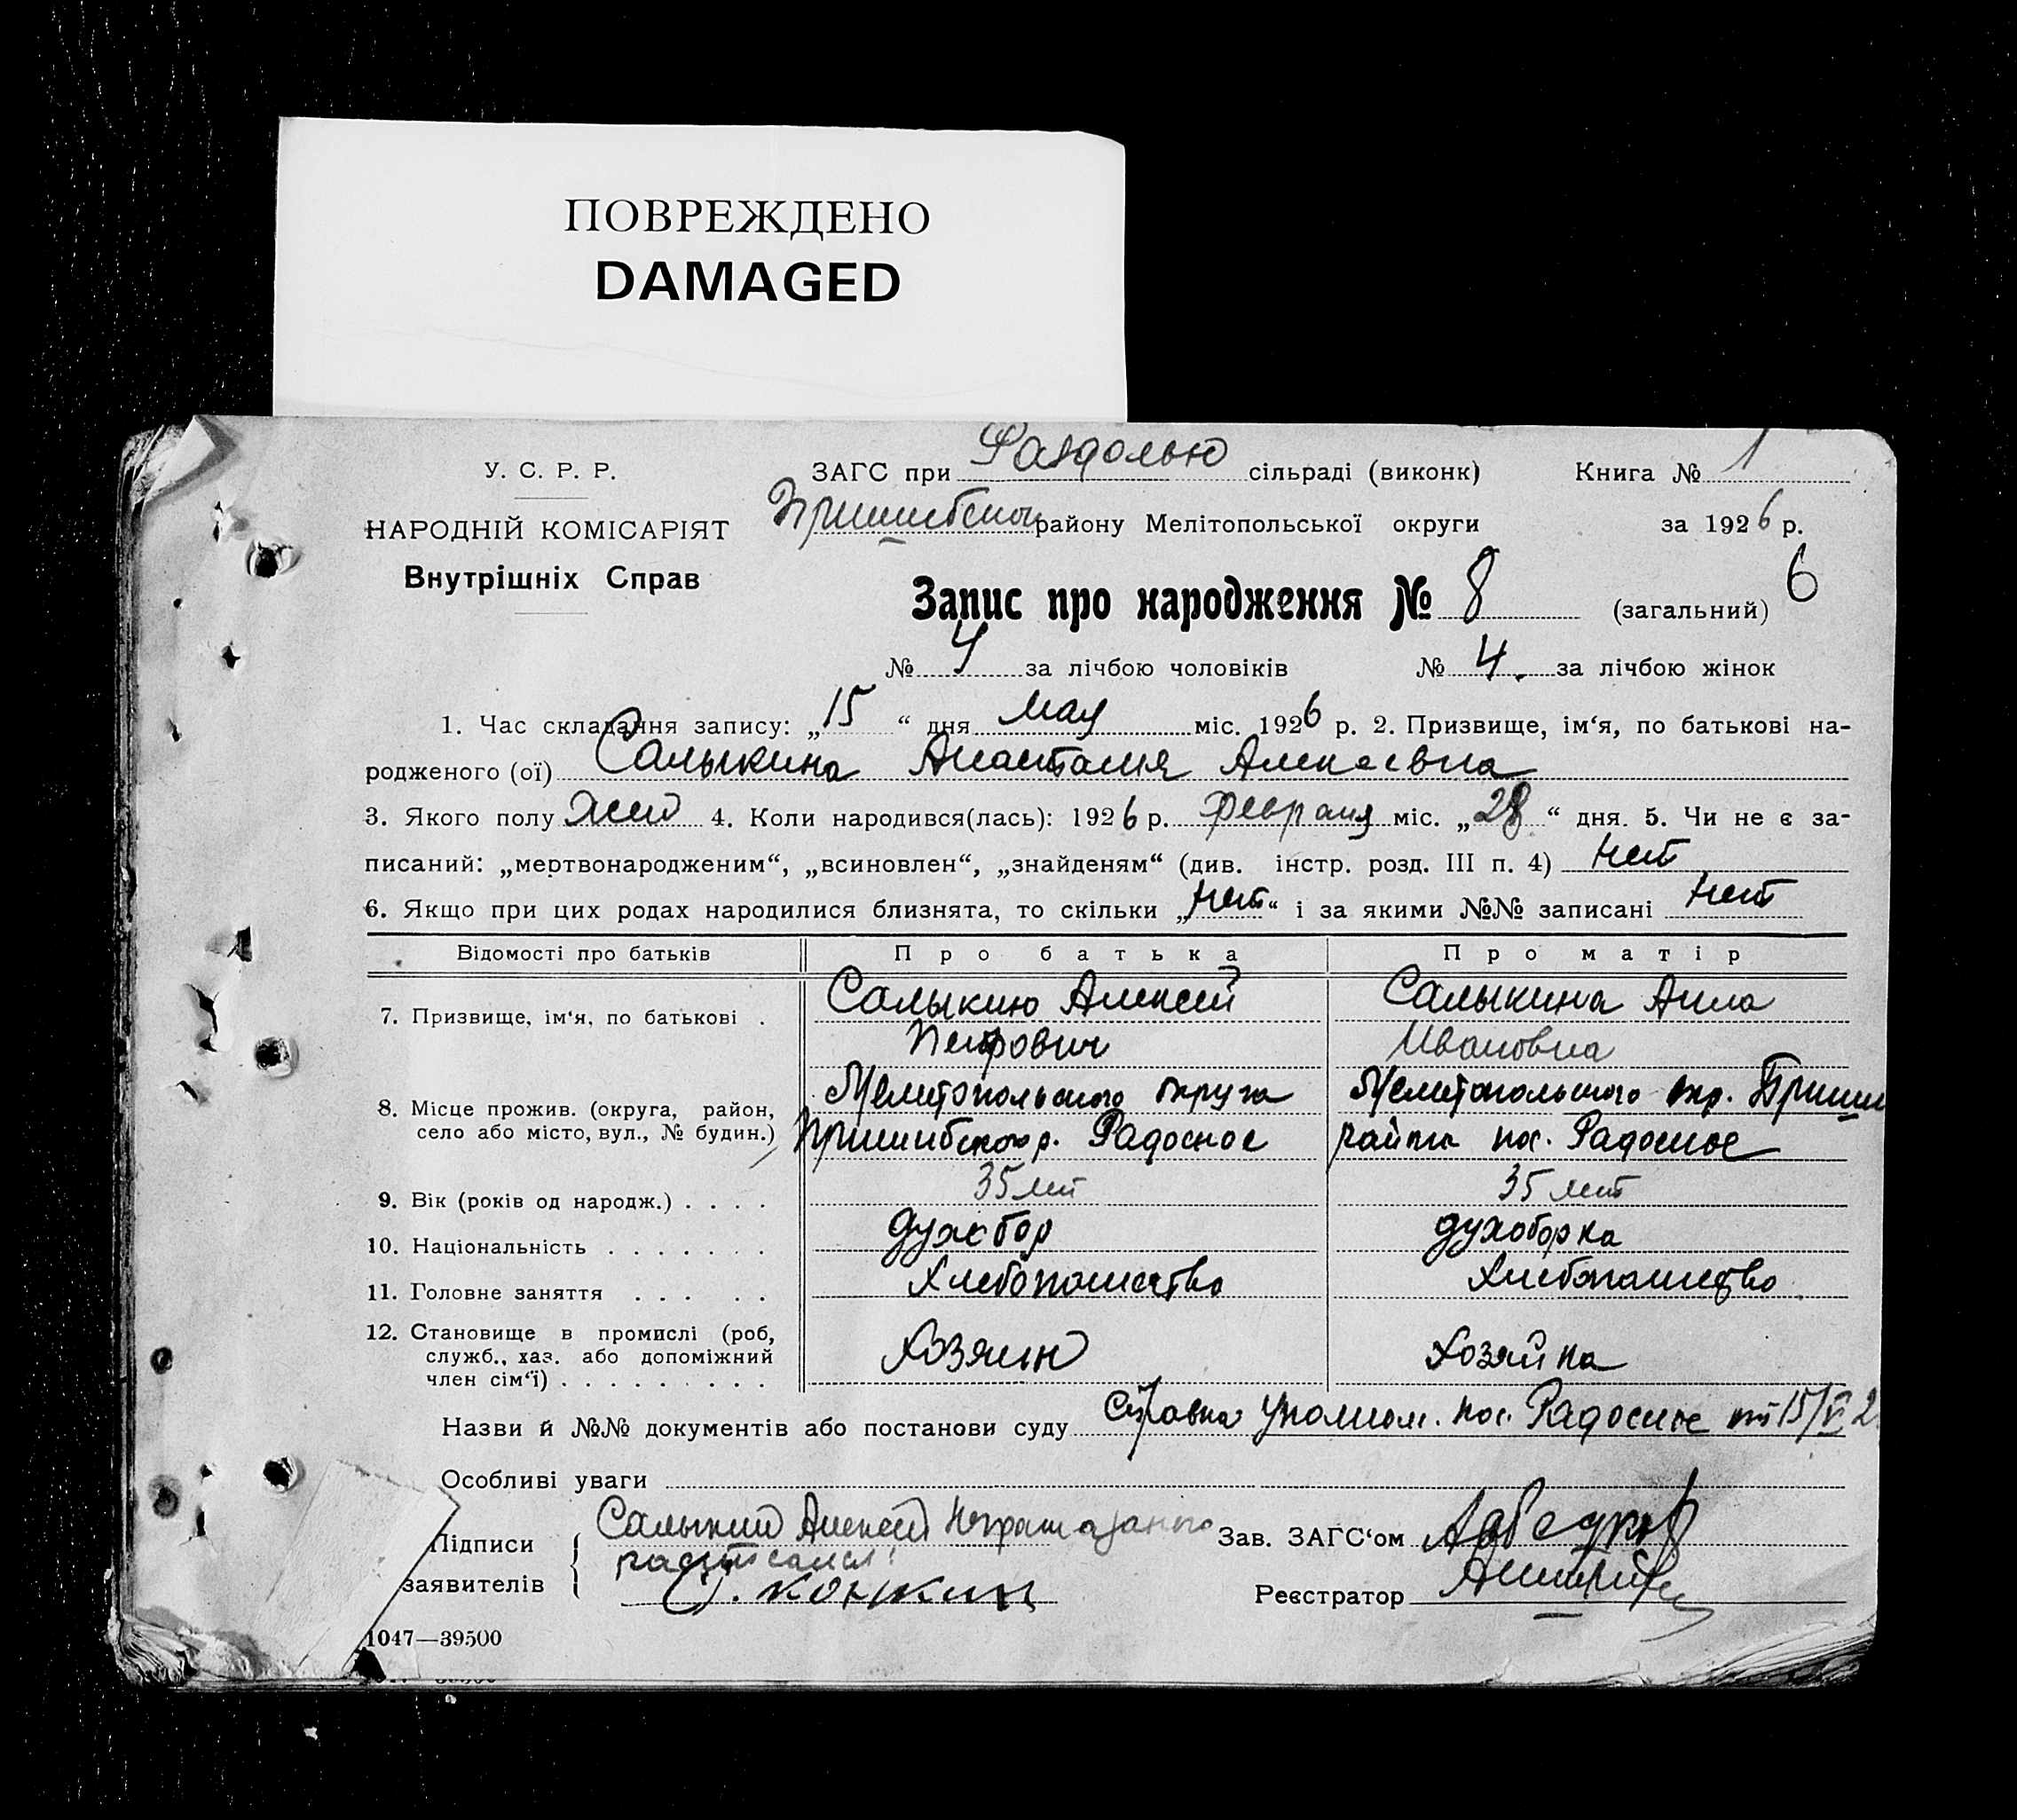 ПОВРЕЖДЕНО
DAMAGED
У. С. Р. Р.
НАРОДНІЙ КОМІСАРІЯТ
Внутрішніх Справ
ЗАГС при Раздолью сільраді (виконк) Книга № 1
Пришибског району Мелітопольської округи за 1926 р.
6
Запис про народження № 8 (загальний)
№ 4 за лічбою чоловіків № 4. за лічбою жінок
1. Час складання запису: „15“ дня мая міс. 1926 р. 2. Призвище, ім‘я, по батькові на-
родженого (ої) Салыкина Анастасия Алексеевна
3. Якого полу жен 4. Коли народився(лась): 1926 р. февраля міс. „28“ дня. 5. Чи не є за-
писаний: „мертвонародженим“, „всиновлен“, „знайденям“ (див. інстр. розд. III п. 4) нет
6. Якщо при цих родах народилися близнята, то скільки „нет“ і за якими №№ записані нет
Відомості про батьків Про батька Про матір
7. Призвище, ім‘я, по батькові . Салыкин Алексей Салыкина Анна
Петрович Ивановна
8. Місце прожив. (округа, район, Мелитопольского округа Мелитопольского окр. Пришиб
село або місто, вул., № будин.) Пришибского р. Радосное района пос. Радосное
9. Вік (років од народж.) . . . . 35 лет 35 лет
10. Національність . . . . . . . духобор духоборка
11. Головне заняття . . . . . Хлебопашество Хлебопашество
12. Становище в промислі (роб,
служб., хаз. або допоміжний Хозяин Хозяйка
член сім‘ї) . . . . . . . . .
Назви й №№ документів або постанови суду Справка уполном. пос. Радосное от 15/V 2
Особливі уваги
Підписи Салыкин Алексей Неграмотный Зав. ЗАГС‘ом
расписался:
заявителів Реєстратор
1047—39500